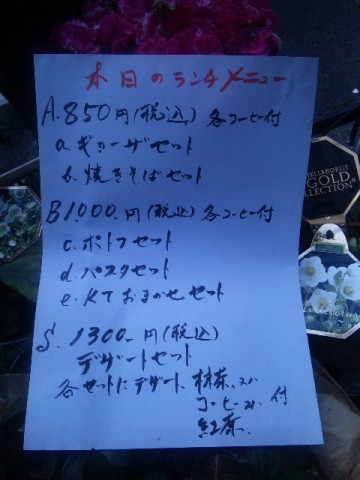 本日のランチメニュー
A. 850円(税込) 各コーヒー付
a. ギョーザセット
b. 焼きそばセット
B 1000.円(税込) 各コーヒー付
c. ポトフセット
d. パスタセット
e. KTおまかせセット
S. 1300-円(税込)
デザートセット
各セットにデザート、抹茶、又ハ
コーヒー又ハ 付
紅茶.
HELLEBORUS
GOLD
COLLECTION®